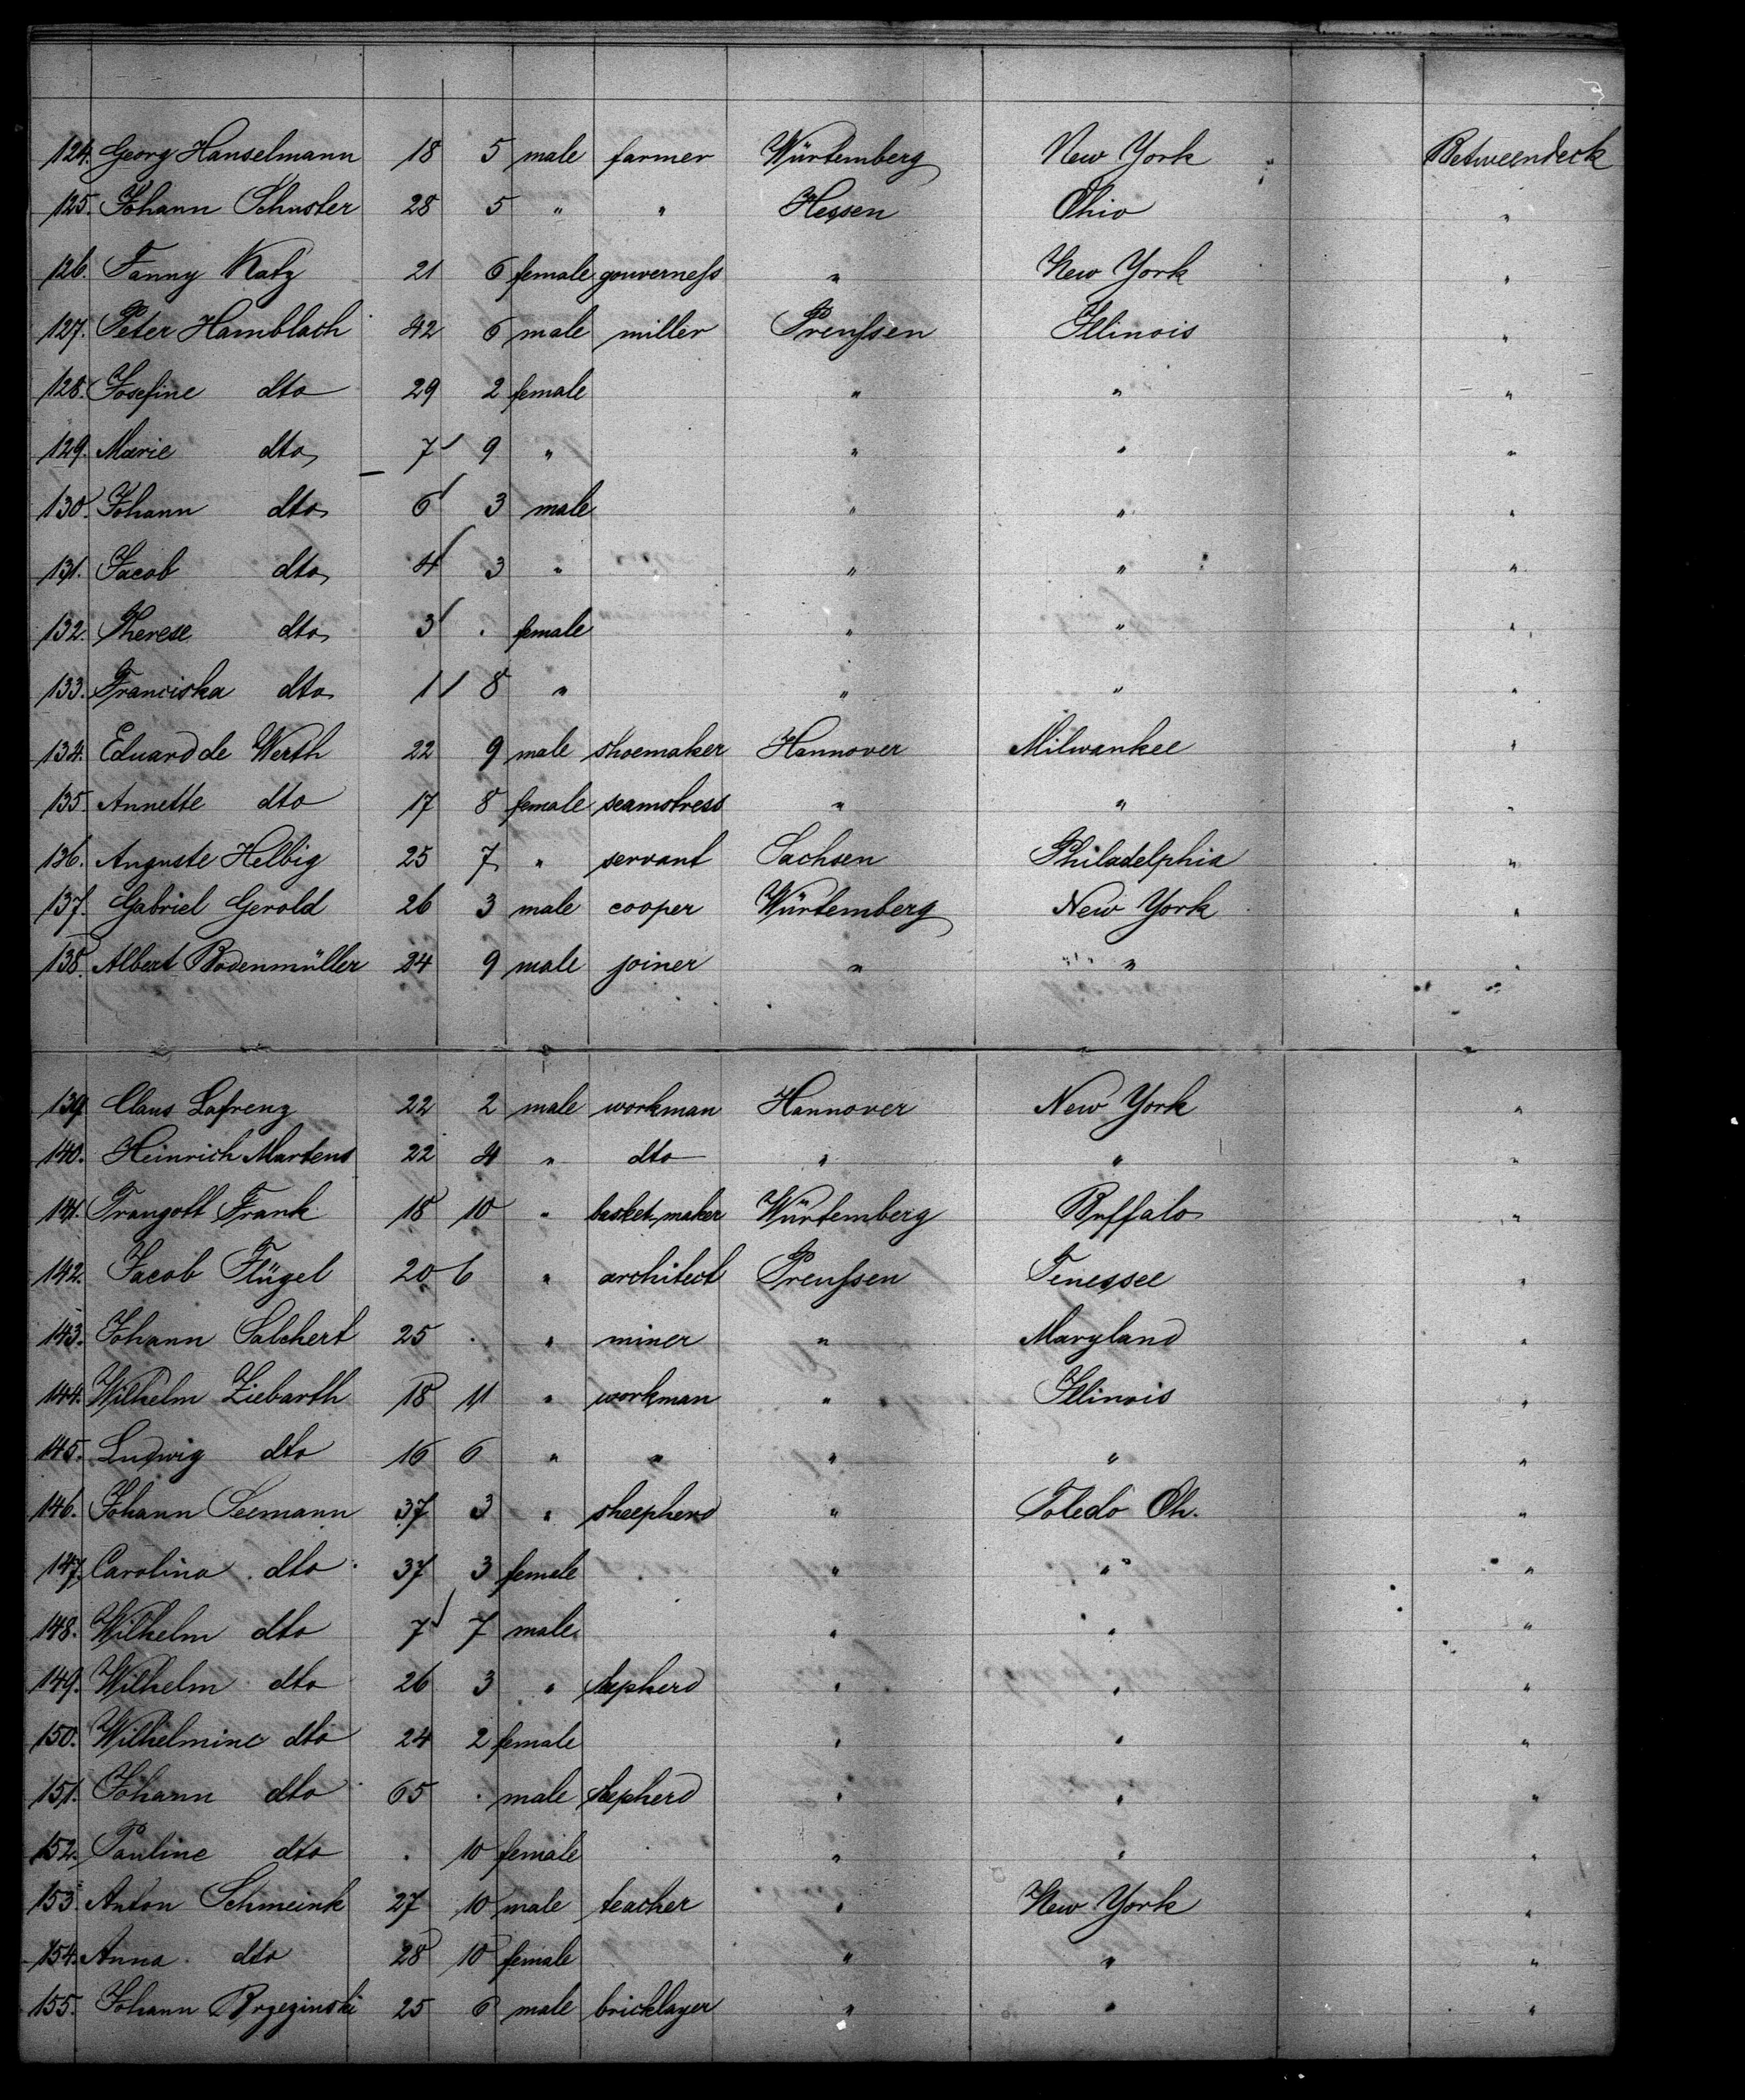 3
124. Georg Hanselmann 18 5 male farmer Würtemberg New York Betweendeck
125. Johann Schuster 28 5 " " Hessen Ohio "
126. Fanny Katz 21 6 female gouverneſs " New York "
127. Peter Hamblach 42 6 male miller Preuſsen Illinois "
128. Josefine dto 29 2 female " " "
129. Marie dto 7 9 " " " "
130. Johann dto 6 3 male " " "
131. Jacob dto 4 3 " " " "
132. Therese dto 3 . female " " "
133. Franciska dto 1 8 " " " "
134. Eduard de Werth 22 9 male shoemaker Hannover Milwaukee "
135. Annette dto 17 8 female seamstress " " "
136. Auguste Helbig 25 7 " servant Sachsen Philadelphia "
137. Gabriel Gerold 26 3 male cooper Würtemberg New York "
138. Albert Bodenmüller 24 9 male joiner " " "
139. Claus Lafrenz 22 2 male workman Hannover New York "
140. Heinrich Martens 22 4 " dto " " "
141. Traugott Frank 18 10 " basket maker Würtemberg Buffalo "
142. Jacob Flügel 20 6 " architect Preuſsen Tenessee "
143. Johann Salchert 25 . " miner " Maryland "
144. Wilhelm Ziebarth 18 11 " workman " Illinois "
145. Ludwig dto 16 6 " " " " "
146. Johann Seemann 37 3 " sheepherd " Toledo Oh. "
147. Carolina dto 37 3 female " " "
148. Wilhelm dto 7 7 male " " "
149. Wilhelm dto 26 3 " " " "
150. Wilhelmine dto 24 2 female " " "
151. Johann dto 65 . male " " "
152. Pauline dto . 10 female " " "
153. Anton Schmeink 27 10 male teacher " New York "
154. Anna dto 28 10 female " " "
155. Johann Brzezinski 25 6 male bricklayer " " "